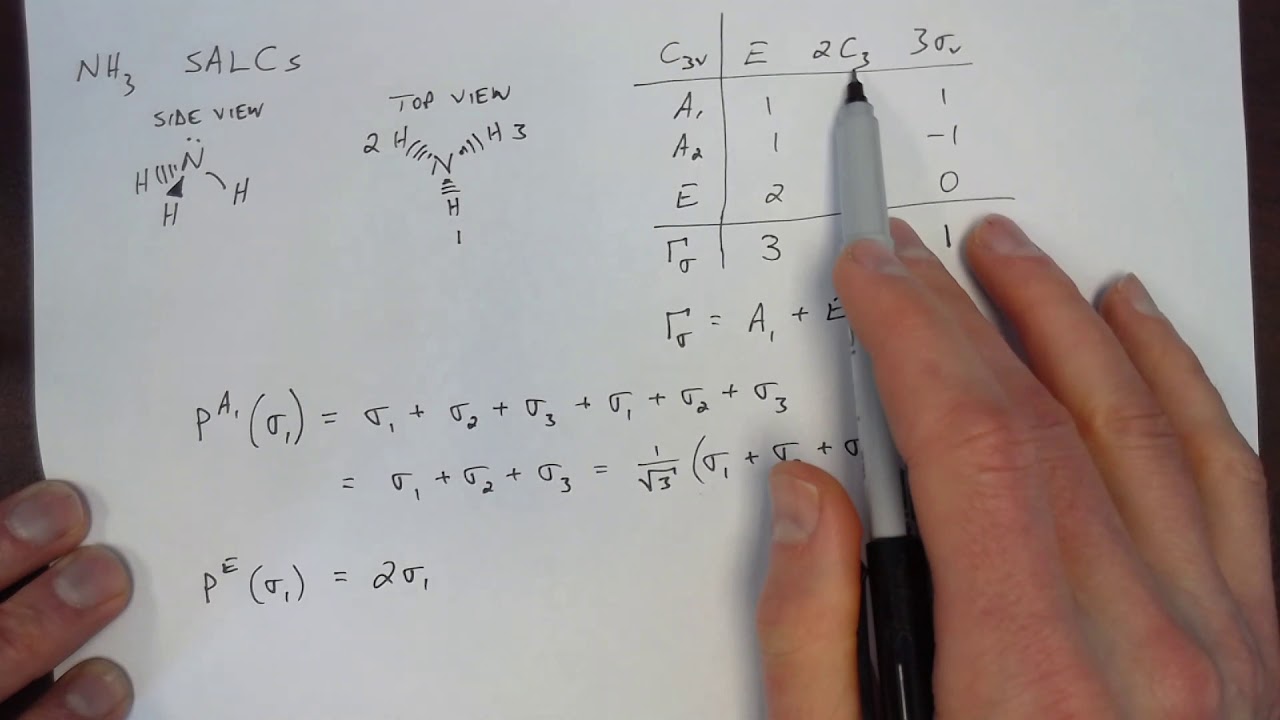 NH₃ SALCs
SIDE VIEW
N
H H
H
TOP VIEW
2 H H 3
N
H
1
C₃ᵥ E 2C₃ 3σᵥ
A₁ 1 1
A₂ 1 -1
E 2 0
Γσ 3 1
Γσ = A₁ + E
P^A₁(σ₁) = σ₁ + σ₂ + σ₃ + σ₁ + σ₂ + σ₃
= σ₁ + σ₂ + σ₃ = 1/√3 (σ₁ + σ₂ + σ
P^E(σ₁) = 2σ₁